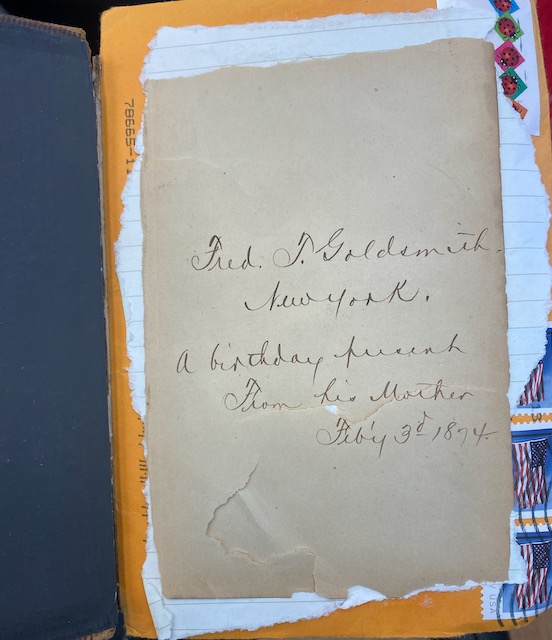 Fred. T. Goldsmith.
New York.
A birthday present
From his Mother
Feb'y 3d 1874.
78665-1
USA